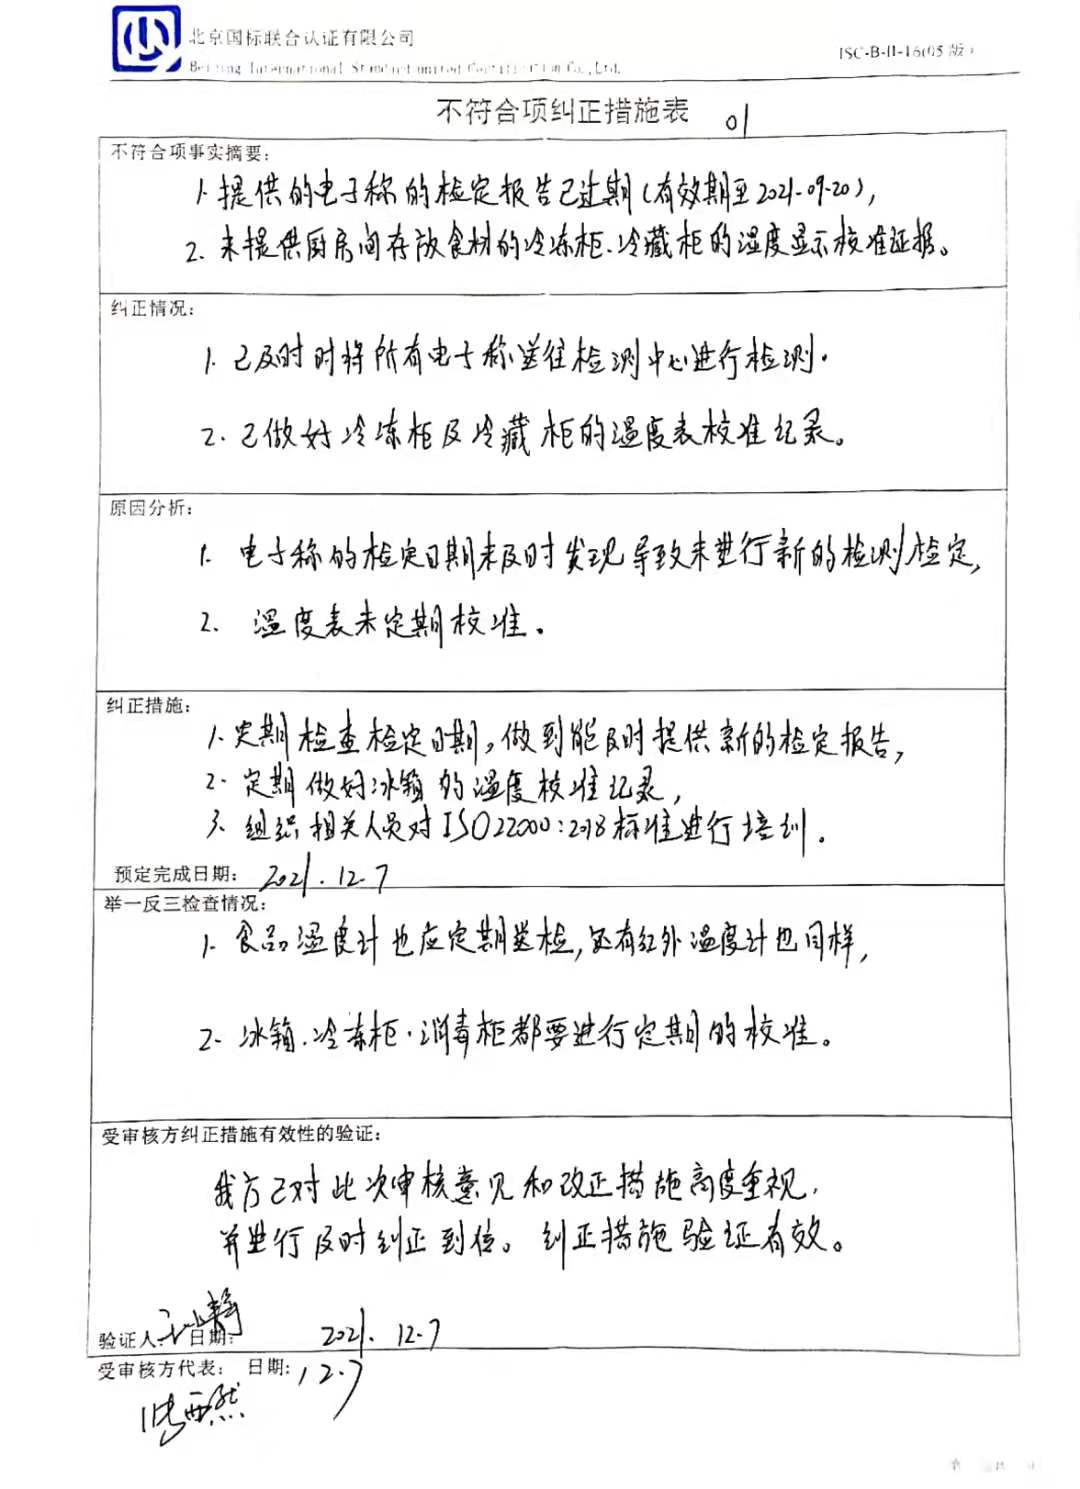 北京国标联合认证有限公司
Beijing International Standard united Certification Co.,Ltd.
ISC-B-II-16(05版)
不符合项纠正措施表 01
不符合项事实摘要:
1. 提供的电子称的检定报告已过期(有效期至2021-09-20),
2. 未提供厨房间存放食材的冷冻柜、冷藏柜的温度显示校准证据。
纠正情况:
1. 已及时时将所有电子称送往检测中心进行检测.
2. 已做好冷冻柜及冷藏柜的温度表校准纪录。
原因分析:
1. 电子称的检定日期未及时发现导致未进行新的检测/检定,
2. 温度表未定期校准。
纠正措施:
1. 定期检查检定日期,做到能及时提供新的检定报告,
2. 定期做好冰箱的温度校准记录,
3. 组织相关人员对ISO22000:2018标准进行培训.
预定完成日期: 2021.12.7
举一反三检查情况:
1. 食品温度计也应定期送检,还有红外温度计也同样,
2. 冰箱.冷冻柜.消毒柜都要进行定期的校准。
受审核方纠正措施有效性的验证:
我方已对此次审核意见和改正措施高度重视.
并进行及时纠正到位。纠正措施验证有效。
验证人: 日期: 2021.12.7
受审核方代表: 日期: 12.7